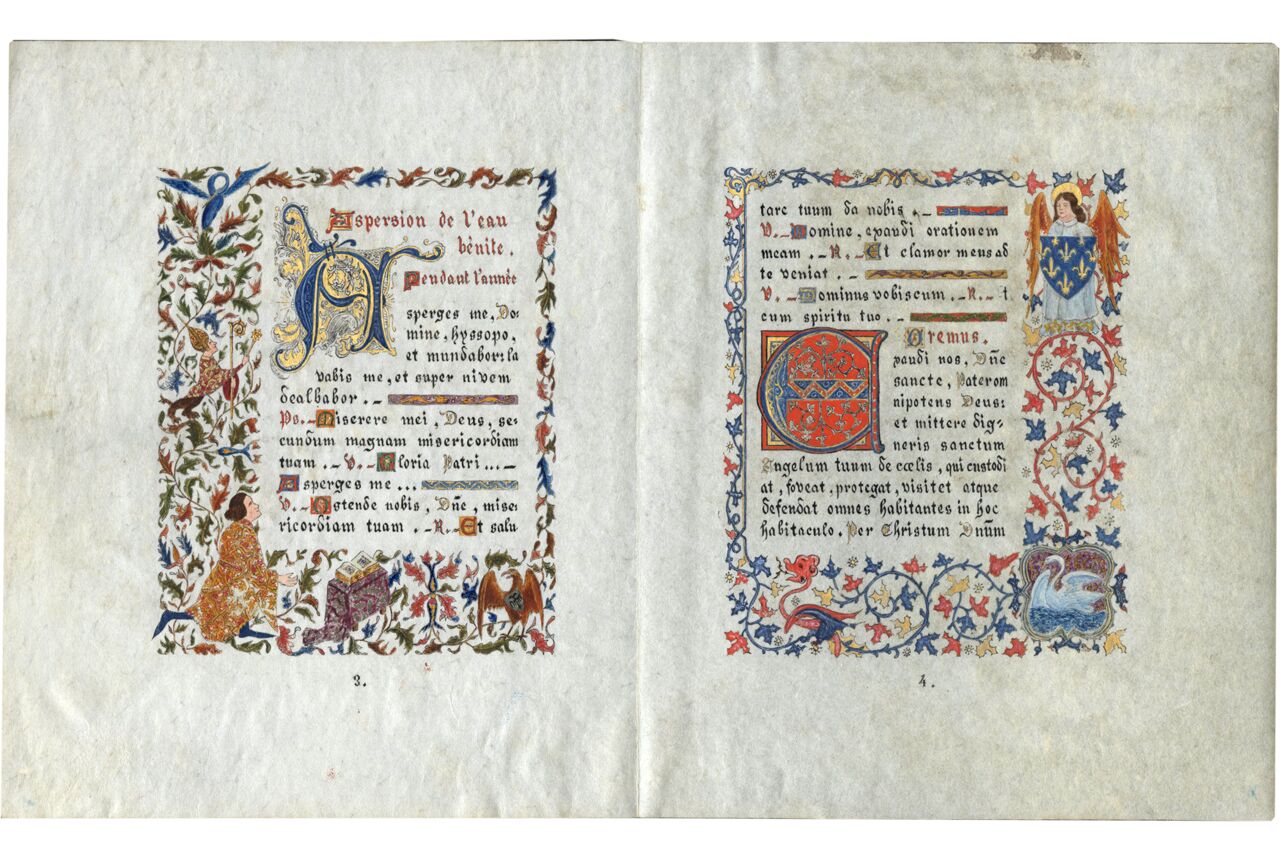 Aspersion de l'eau
bénite.
Pendant l'année
Asperges me, Do=
mine, hyssopo,
et mundabor: la
vabis me, et super nivem
dealbabor.
Ps. Miserere mei, Deus, se-
cundum magnam misericordiam
tuam. V. Gloria Patri...
Asperges me...
V. Ostende nobis, Dñe, mise-
ricordiam tuam. R. Et salu
3.
tare tuum da nobis.
V. Domine, exaudi orationem
meam. R. Et clamor meus ad
te veniat.
V. Dominus vobiscum. R. Et
cum spiritu tuo.
Oremus.
Exaudi nos, Dñe
sancte, Pater om
nipotens Deus:
et mittere dig=
neris sanctum
Angelum tuum de cœlis, qui custodi
at, foveat, protegat, visitet atque
defendat omnes habitantes in hoc
habitaculo. Per Christum Dnũm
4.